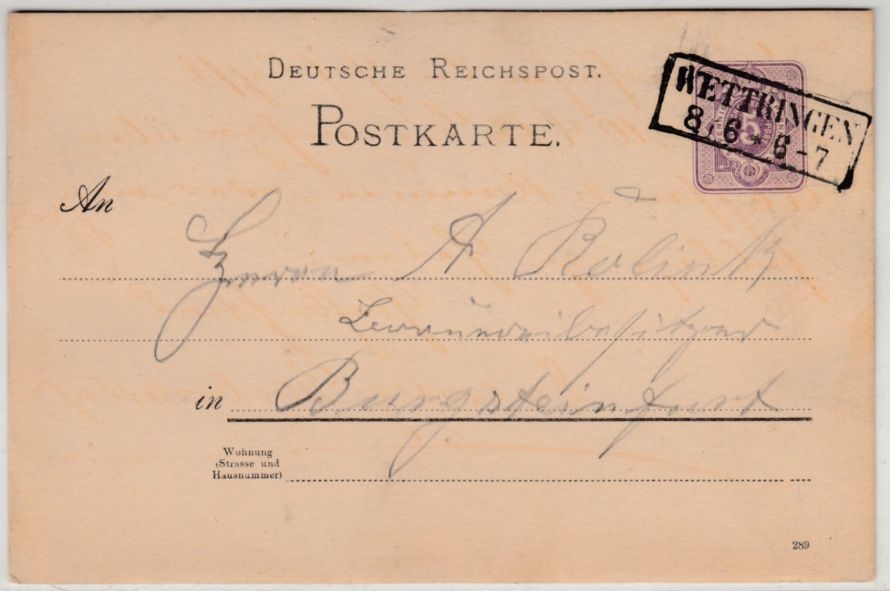 DEUTSCHE REICHSPOST.
POSTKARTE.
WETTRINGEN
8 6 * 6-7
5
An
Herrn A Rolinck
Brauereibesitzer
in Burgsteinfurt
Wohnung
(Strasse und
Hausnummer)
289